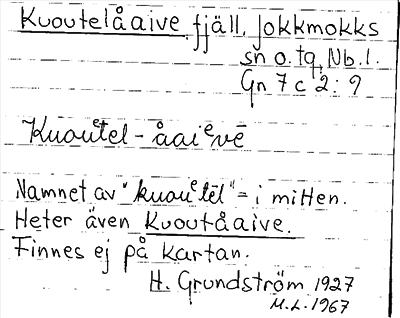 Kuoutelåaive, fjäll, Jokkmokks
sn o. tg, Nb. l.
Gn 7 c 2 : 9
Kuouᵉtel - åaiᵉvē
Namnet av "kuouᵉtēl" = i mitten.
Heter även Kuoutåaive.
Finnes ej på kartan.
H. Grundström 1927
M.L. 1967